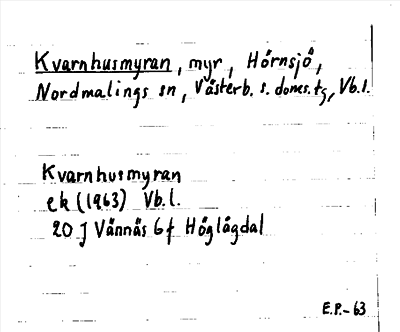 Kvarnhusmyran, myr, Hörnsjö,
Nordmalings sn, Västerb. s. doms. tg, Vb.l.
Kvarnhusmyran
ek (1963) Vb.l.
20 J Vännäs 6f Höglågdal
E.P.-63